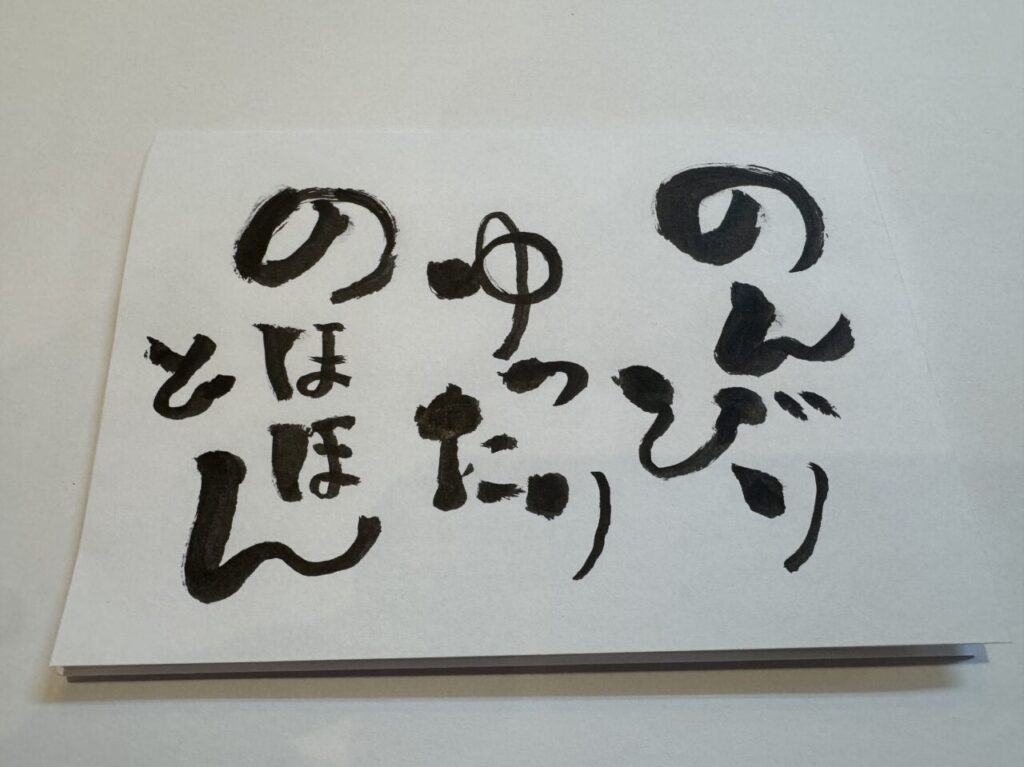 のんびり
ゆったり
のほほん
と